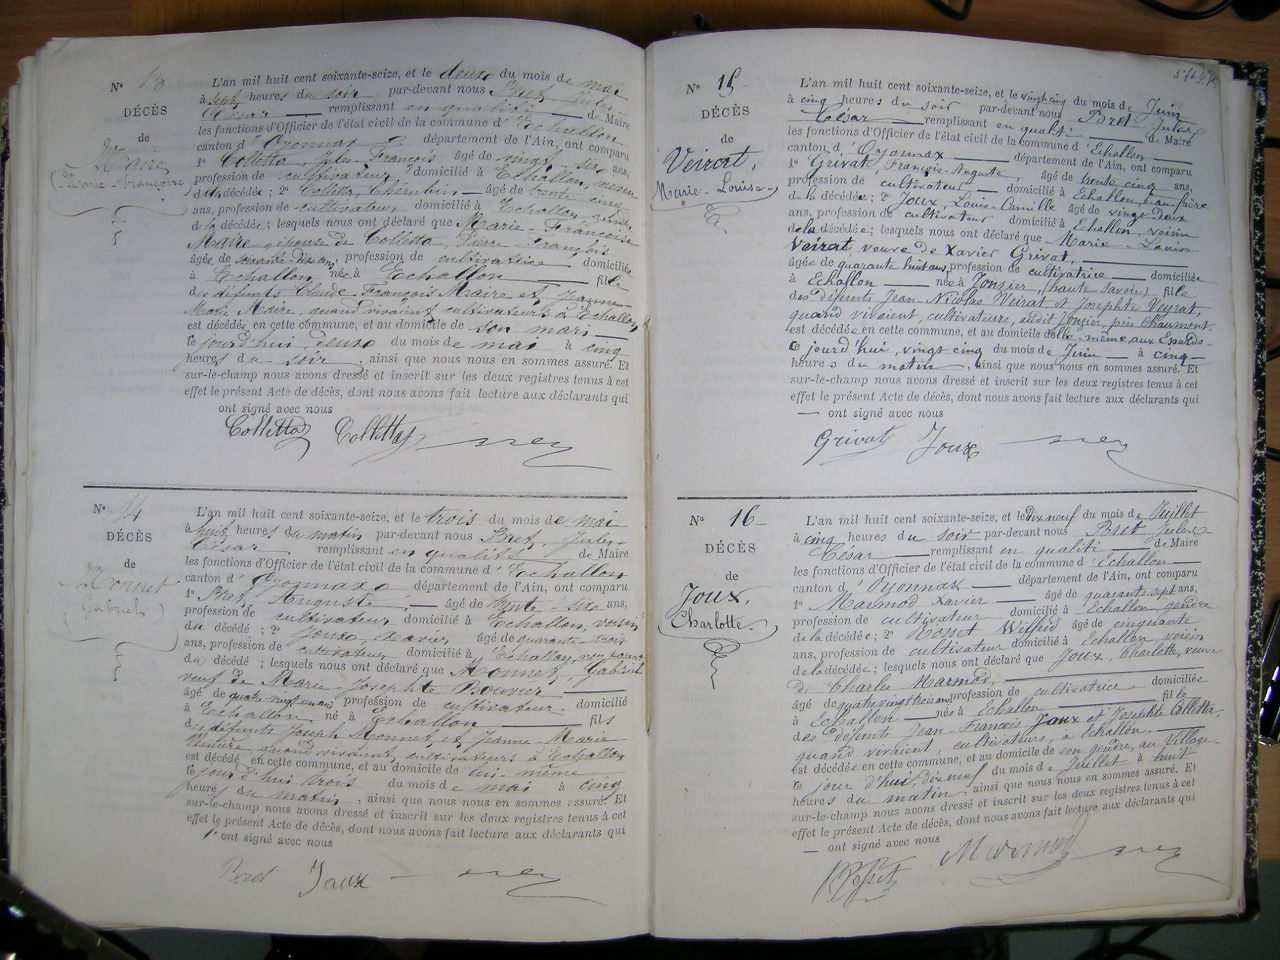 N° 13
DÉCÈS
de
Maire
(Marie-Françoise)
L'an mil huit cent soixante-seize, et le deux du mois de mai
à sept heures du soir par-devant nous Bret, Jules
César remplissant en qualité de Maire
les fonctions d'Officier de l'état civil de la commune d'Echallon
canton d'Oyonnax département de l'Ain, ont comparu
1° Colletta, Jules-François âgé de vingt-six ans,
profession de cultivateur, domicilié à Echallon, neveu
de la décédée; 2° Colletta, Chérubin âgé de trente cinq
ans, profession de cultivateur domicilié à Echallon,
de la décédée; lesquels nous ont déclaré que Marie-Françoise
Maire, épouse de Colletta, Pierre-François
âgée de soixante-dix ans, profession de cultivatrice domiciliée
à Echallon, née à Echallon fille
des défunts Claude-François Maire et Jeanne
Marie Maire, quand vivaient cultivateurs à Echallon
est décédée en cette commune, et au domicile de son mari
ce jourd'hui, deux du mois de mai à cinq
heures du soir, ainsi que nous nous en sommes assuré. Et
sur-le-champ nous avons dressé et inscrit sur les deux registres tenus à cet
effet le présent Acte de décès, dont nous avons fait lecture aux déclarants qui
ont signé avec nous
Colletta Colletta
N° 14
DÉCÈS
de
Monnet
(Gabriel)
L'an mil huit cent soixante-seize, et le trois du mois de mai
à huit heures du matin par-devant nous Bret, Jules
César remplissant en qualité de Maire
les fonctions d'Officier de l'état civil de la commune d'Echallon
canton d'Oyonnax département de l'Ain, ont comparu
1° Bret, Auguste, âgé de trente-six ans,
profession de cultivateur domicilié à Echallon, voisin
du décédé; 2° Joux, Xavier âgé de quarante trois
ans, profession de cultivateur domicilié à Echallon,
du décédé; lesquels nous ont déclaré que Monnet, Gabriel
veuf de Marie Josephte Bouvier
âgé de quatre-vingt un ans, profession de cultivateur domicilié
à Echallon né à Echallon fils
des défunts Joseph Monnet, et Jeanne Marie
quand vivaient, cultivateurs à Echallon
est décédé en cette commune, et au domicile de lui-même
ce jour d'hui trois du mois de mai à cinq
heures du matin, ainsi que nous nous en sommes assuré. Et
sur-le-champ nous avons dressé et inscrit sur les deux registres tenus à cet
effet le présent Acte de décès, dont nous avons fait lecture aux déclarants qui
ont signé avec nous
Bret Joux
N° 15
DÉCÈS
de
Veirat,
Marie-Louise
L'an mil huit cent soixante-seize, et le vingt cinq du mois de Juin
à cinq heures du soir par-devant nous Bret Jules
César remplissant en qualité de Maire
les fonctions d'Officier de l'état civil de la commune d'Echallon
canton d'Oyonnax département de l'Ain, ont comparu
1° Grivat, François-Auguste, âgé de trente cinq ans,
profession de cultivateur domicilié à Echallon, beau-frère
de la décédée; 2° Joux, Louis-Camille âgé de vingt deux
ans, profession de cultivateur domicilié à Echallon, voisin
de la décédée; lesquels nous ont déclaré que Marie-Louise
Veirat, veuve de Xavier Grivat,
âgée de quarante huit ans, profession de cultivatrice domiciliée
à Echallon née à Jonzier, (haute Savoie) fille
des défunts Jean-Nicolas Veirat et Josephte Veyrat,
quand vivaient, cultivateurs, audit Jonzier, près Chaumont
est décédée en cette commune, et au domicile d'elle-même aux
ce jourd'hui, vingt cinq du mois de Juin à cinq
heures du matin, ainsi que nous nous en sommes assuré. Et
sur-le-champ nous avons dressé et inscrit sur les deux registres tenus à cet
effet le présent Acte de décès, dont nous avons fait lecture aux déclarants qui
ont signé avec nous
Grivat Joux
N° 16
DÉCÈS
de
Joux,
Charlotte
L'an mil huit cent soixante-seize, et le dix neuf du mois de Juillet
à cinq heures du soir par-devant nous Bret Jules
César remplissant en qualité de Maire
les fonctions d'Officier de l'état civil de la commune d'Echallon
canton d'Oyonnax département de l'Ain, ont comparu
1° Marmod Xavier âgé de quarante sept ans,
profession de cultivateur domicilié à Echallon, gendre
de la décédée; 2° Rosset Wilfrid âgé de cinquante
ans, profession de cultivateur domicilié à Echallon voisin
de la décédée; lesquels nous ont déclaré que Joux, Charlotte, veuve
de Charles Marmod,
âgée de quatre vingt trois ans, profession de cultivatrice domiciliée
à Echallon née à Echallon fille
des défunts Jean-François Joux et Josephte Colletta,
quand vivaient, cultivateurs, à Echallon,
est décédée en cette commune, et au domicile de son gendre, au Village
ce jour d'hui, dix neuf du mois de Juillet à huit
heures du matin, ainsi que nous nous en sommes assuré. Et
sur-le-champ nous avons dressé et inscrit sur les deux registres tenus à cet
effet le présent Acte de décès, dont nous avons fait lecture aux déclarants qui
ont signé avec nous
Rosset Marmod